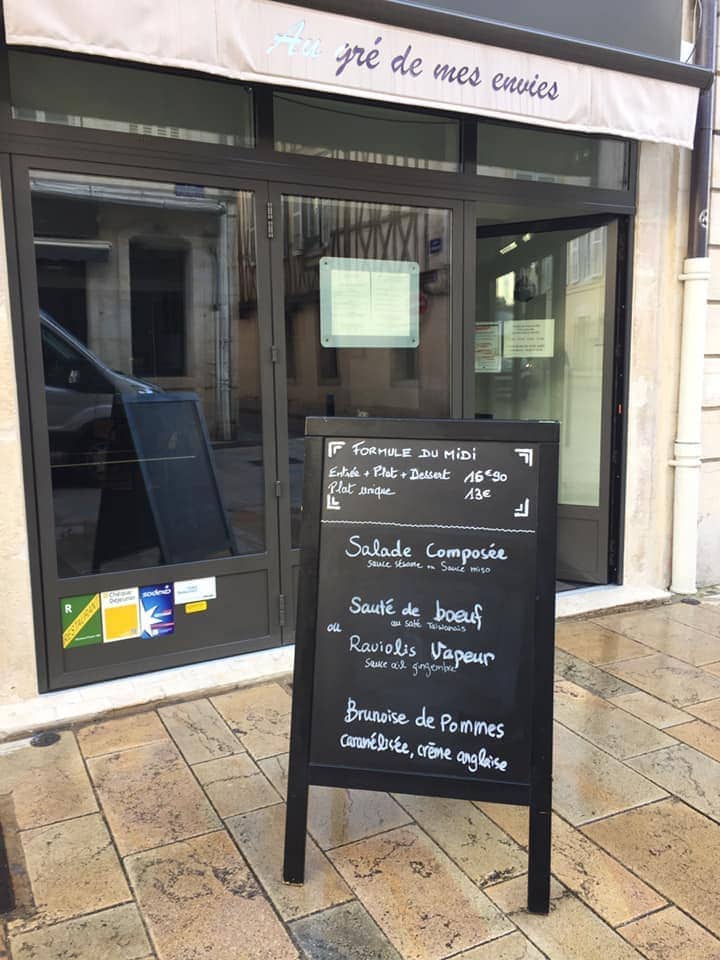 Au gré de mes envies
FORMULE DU MIDI
Entrée + Plat + Dessert 16€90
Plat unique 13€
Salade Composée
sauce sésame ou Sauce miso
Sauté de boeuf
au saté Taiwanais
ou
Raviolis Vapeur
sauce ail gingembre
Brunoise de Pommes
caramélisée, crème anglaise
R
RESTAURANT
Chèque Déjeuner
sodexo